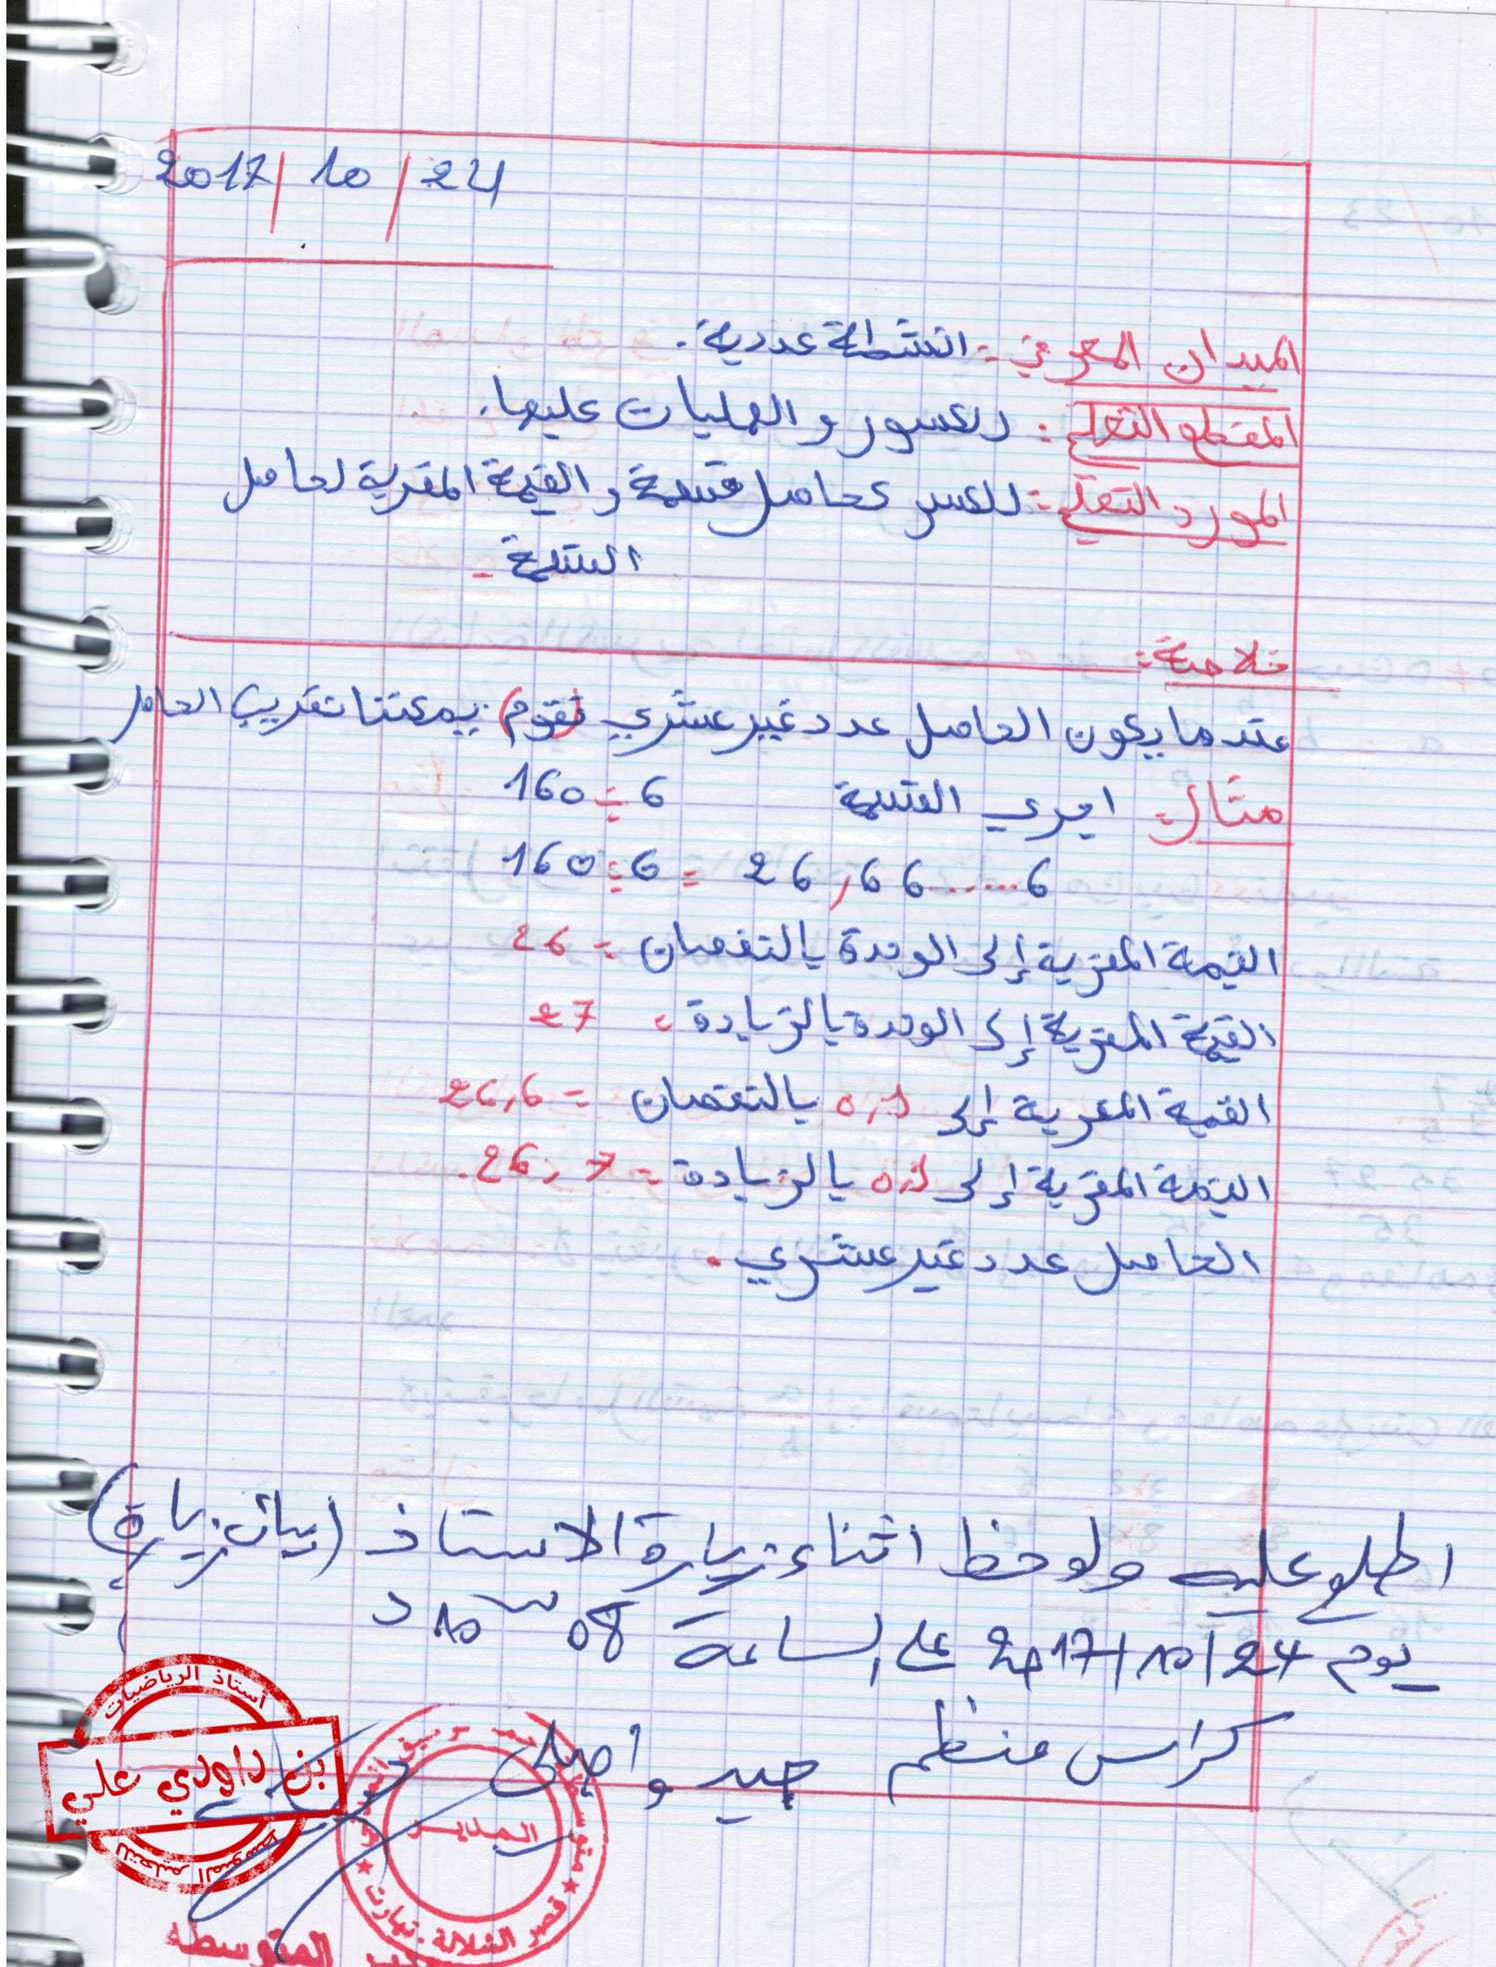 2017/10/24
الميدان المعرفي: انشطة عددية.
المقطع التعلمي: الكسور والعمليات عليها.
المورد التعلمي: الكسر كحاصل قسمة و القيمة المقربة لحاصل
القسمة
خلاصة:
عندما يكون الحاصل عدد غير عشري (نقوم) يمكننا تقريب الحاصل
مثال: اجري القسمة 160÷6
160÷6 = 26,66......6
القيمة المقربة إلى الوحدة بالنقصان = 26
القيمة المقربة إلى الوحدة بالزيادة = 27
القيمة المقربة إلى 0,1 بالنقصان = 26,6
القيمة المقربة إلى 0,1 بالزيادة = 26,7.
الحاصل عدد غير عشري.
اطلع عليه ولوحظ اثناء زيارة الاستاذ (بيان زيارة)
يوم 2017/10/24 على الساعة 08 س 10 د
كراس منظم جيد واصلي
أستاذ الرياضيات
بن داودي علي
للتعليم المتوسط
المدير
قصر الشلالة. تيارت
المتوسطة